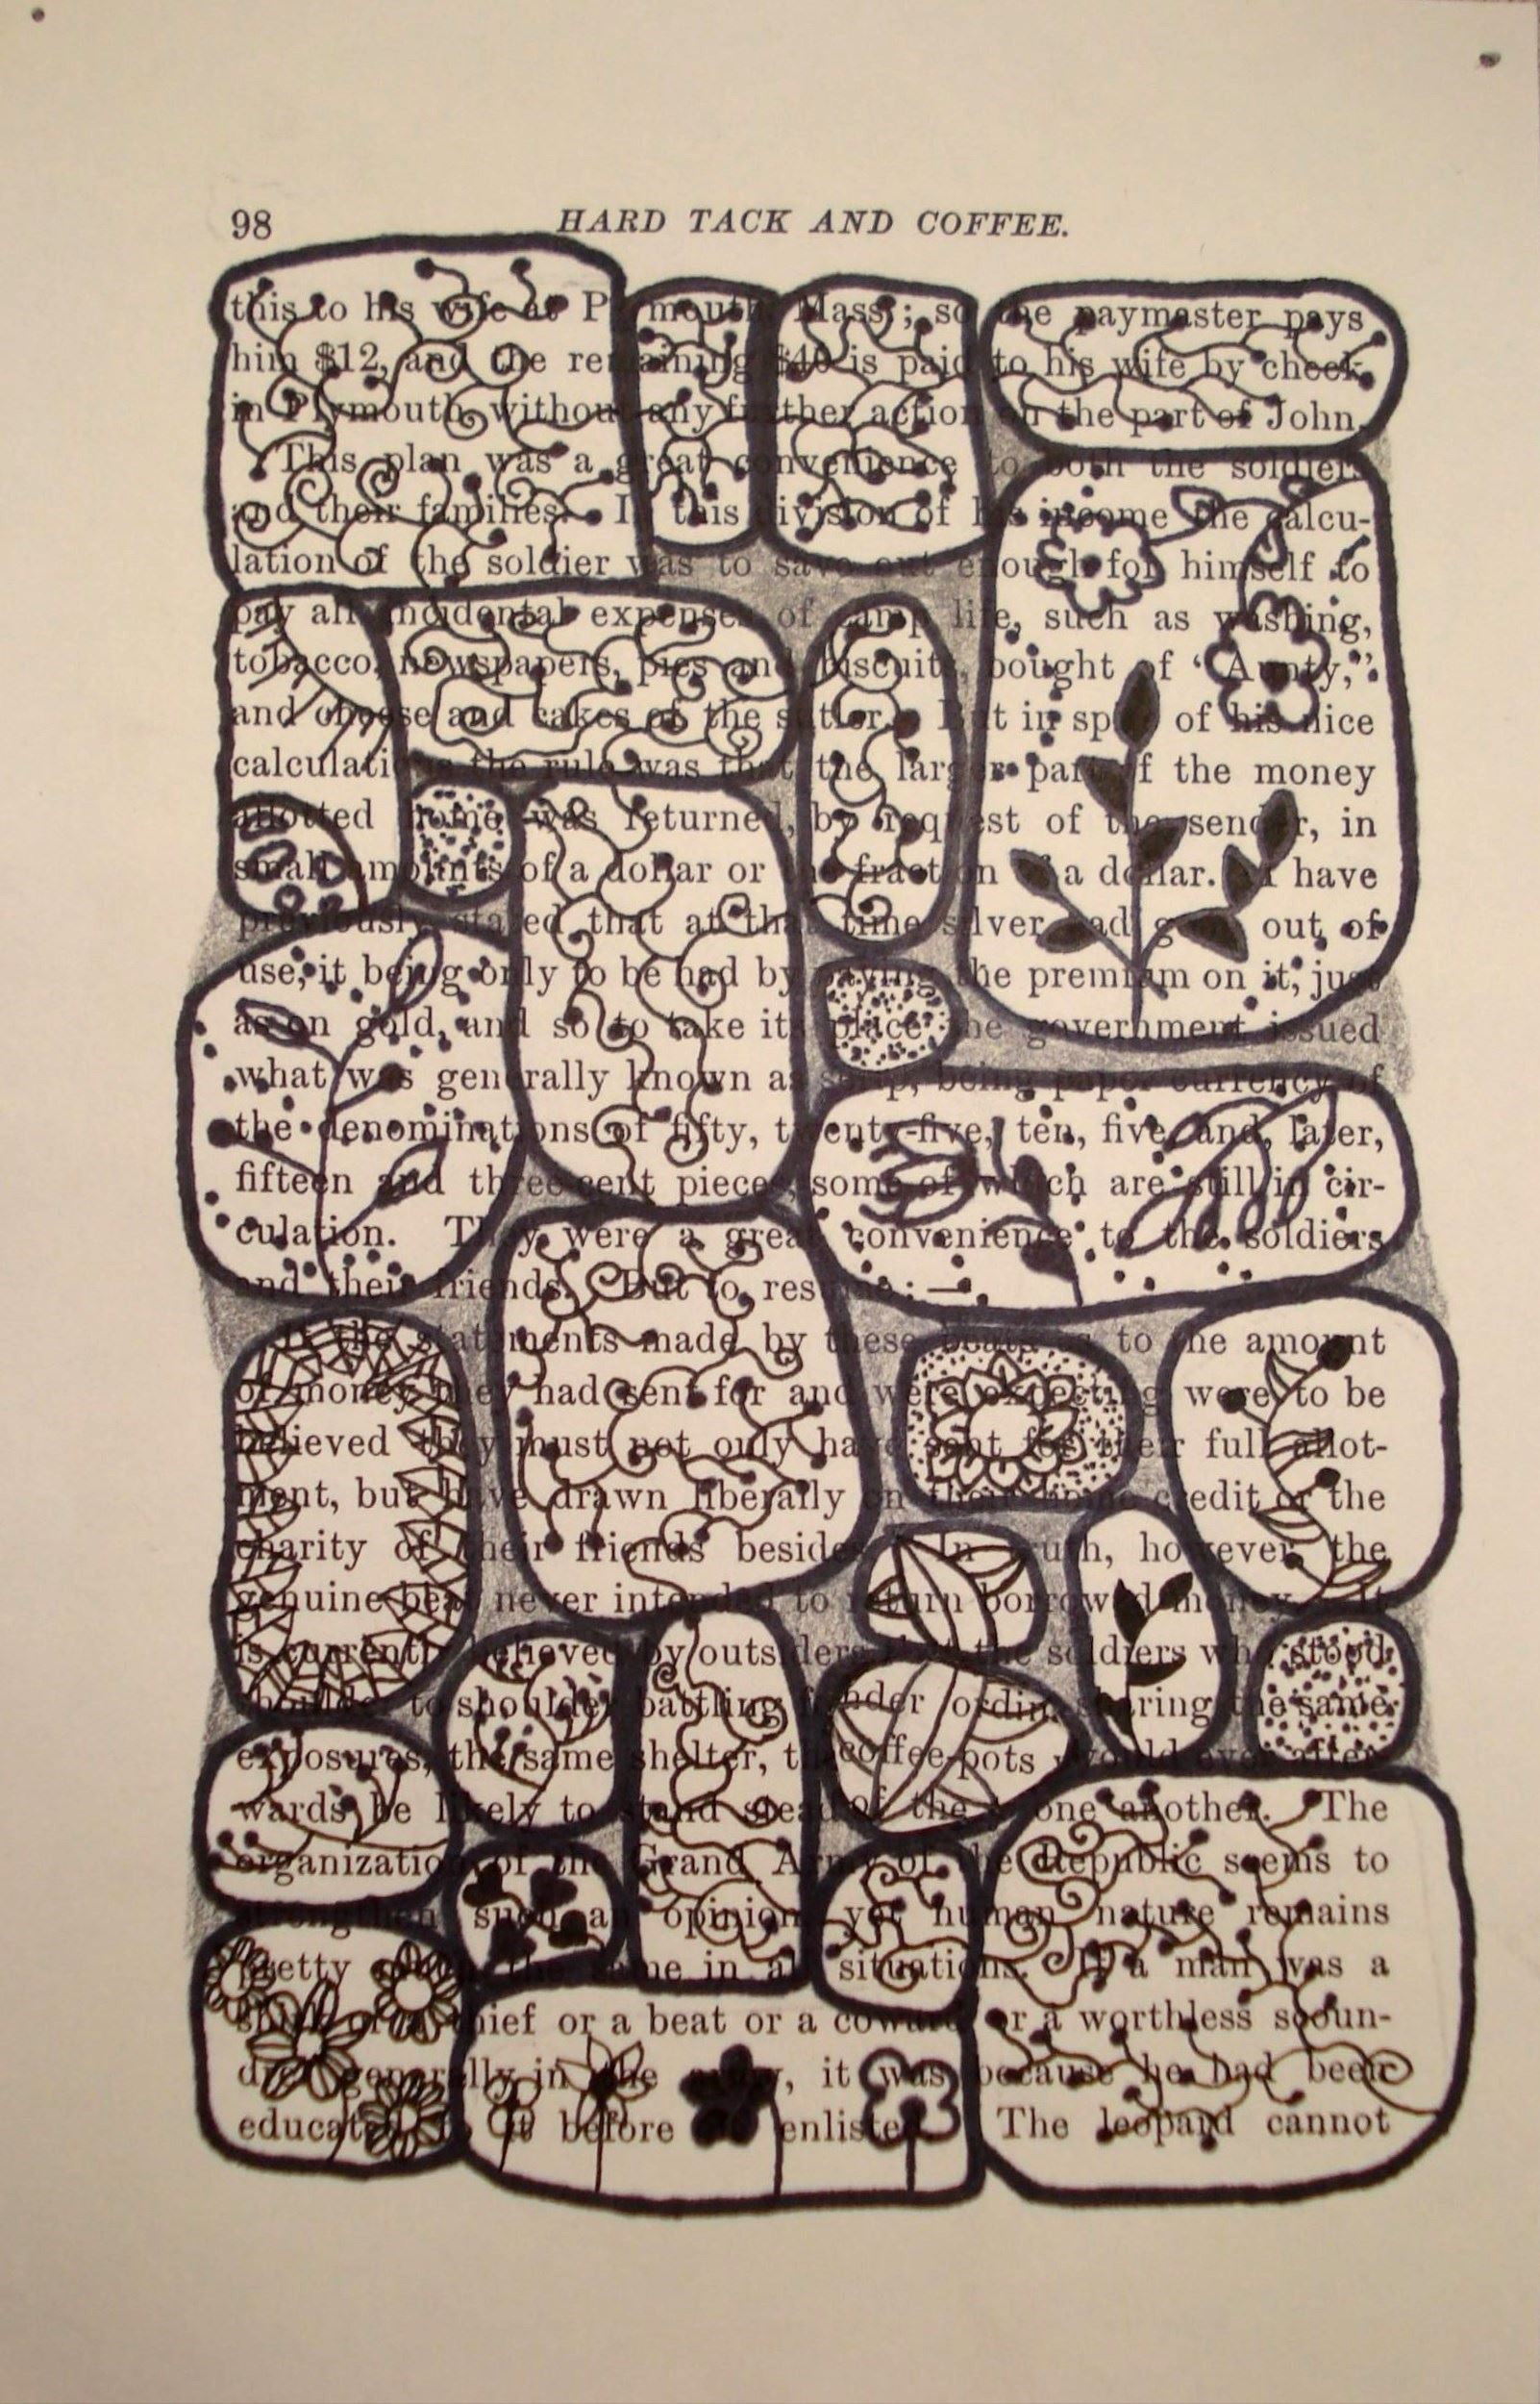 98 HARD TACK AND COFFEE.
this to his wife at Plymouth, Mass.; so the paymaster pays
him $12, and the remaining $40 is paid to his wife by check
in Plymouth, without any further action on the part of John.
This plan was a great convenience to both the soldiers
and their families. In this division of his income the calcu-
lation of the soldier was to save out enough for himself to
pay all incidental expenses of camp life, such as washing,
tobacco, newspapers, pies and biscuits, bought of “Aunty,”
and cheese and cakes of the sutler. But in spite of his nice
calculations the rule was that the larger part of the money
allotted home was returned, by request of the sender, in
small amounts of a dollar or the fraction of a dollar. I have
previously stated that at that time silver had gone out of
use, it being only to be had by paying the premium on it, just
as on gold, and so to take its place the government issued
what was generally known as scrip, being paper currency of
the denominations of fifty, twenty-five, ten, five, and, later,
fifteen and three cent pieces, some of which are still in cir-
culation. They were a great convenience to the soldiers
and their friends. But to resume: —
If the statements made by these beats as to the amount
of money they had sent for and were expecting were to be
believed they must not only have sent for their full allot-
ment, but have drawn liberally on their home credit or the
charity of their friends besides. In truth, however, the
genuine beat never intended to return borrowed money. It
is currently believed by outsiders that the soldiers who stood
shoulder to shoulder battling sharing the same
exposures, the same shelter, coffee-pots would ever after-
wards be likely to stand stead of the one another. The
organization of the Grand Army of the Republic seems to
strengthen such an opinion, yet human nature remains
pretty much the same in all situations. If a man was a
thief or a beat or a coward or a worthless scoun-
drel generally in the army, it was because he had been
educated to it before he enlisted. The leopard cannot